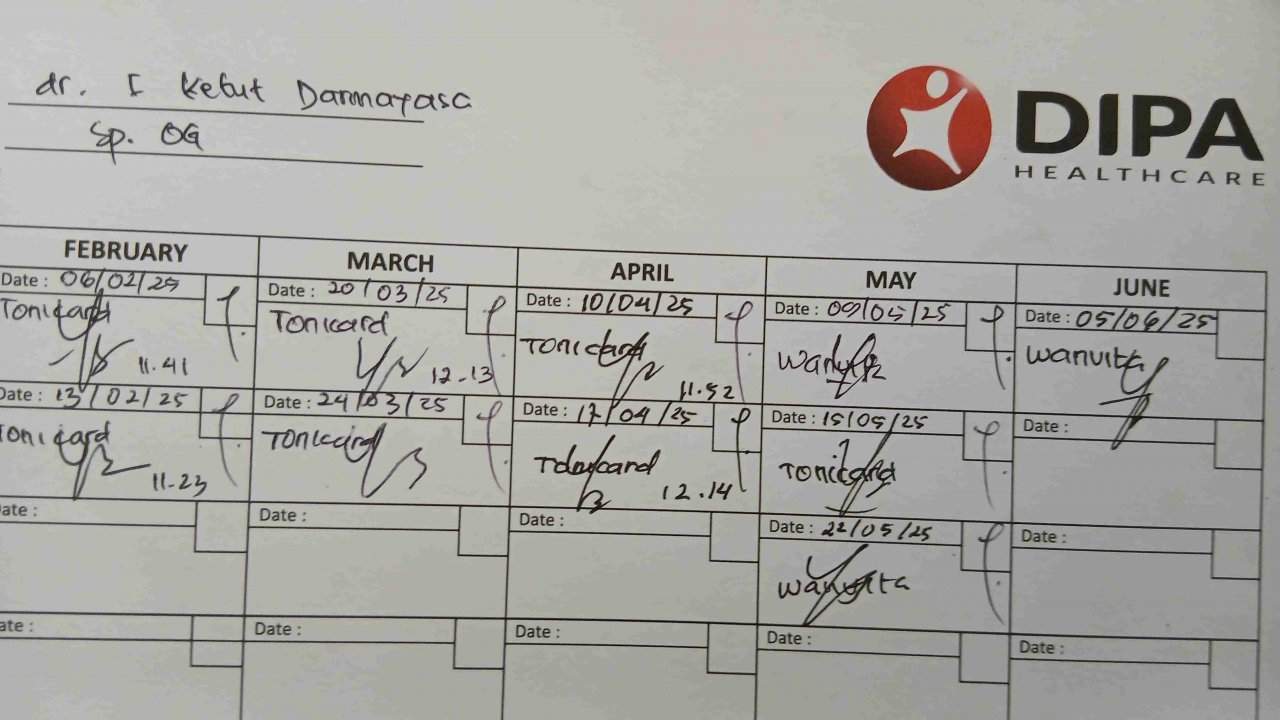 dr. I Ketut Darmayasa
Sp. OG
DIPA
HEALTHCARE
FEBRUARY MARCH APRIL MAY JUNE
Date : 06/02/25 Date : 20/03/25 Date : 10/04/25 Date : 09/05/25 Date : 05/06/25
Tonicard Tonicard Tonicard Wanvita Wanvita
11.41 12.13 11.52
Date : 13/02/25 Date : 24/03/25 Date : 17/04/25 Date : 15/05/25 Date :
Tonicard Tonicard Tonicard Tonicard
11.23 12.14
ate : Date : Date : Date : 22/05/25 Date :
Wanvita
ate : Date : Date : Date : Date :